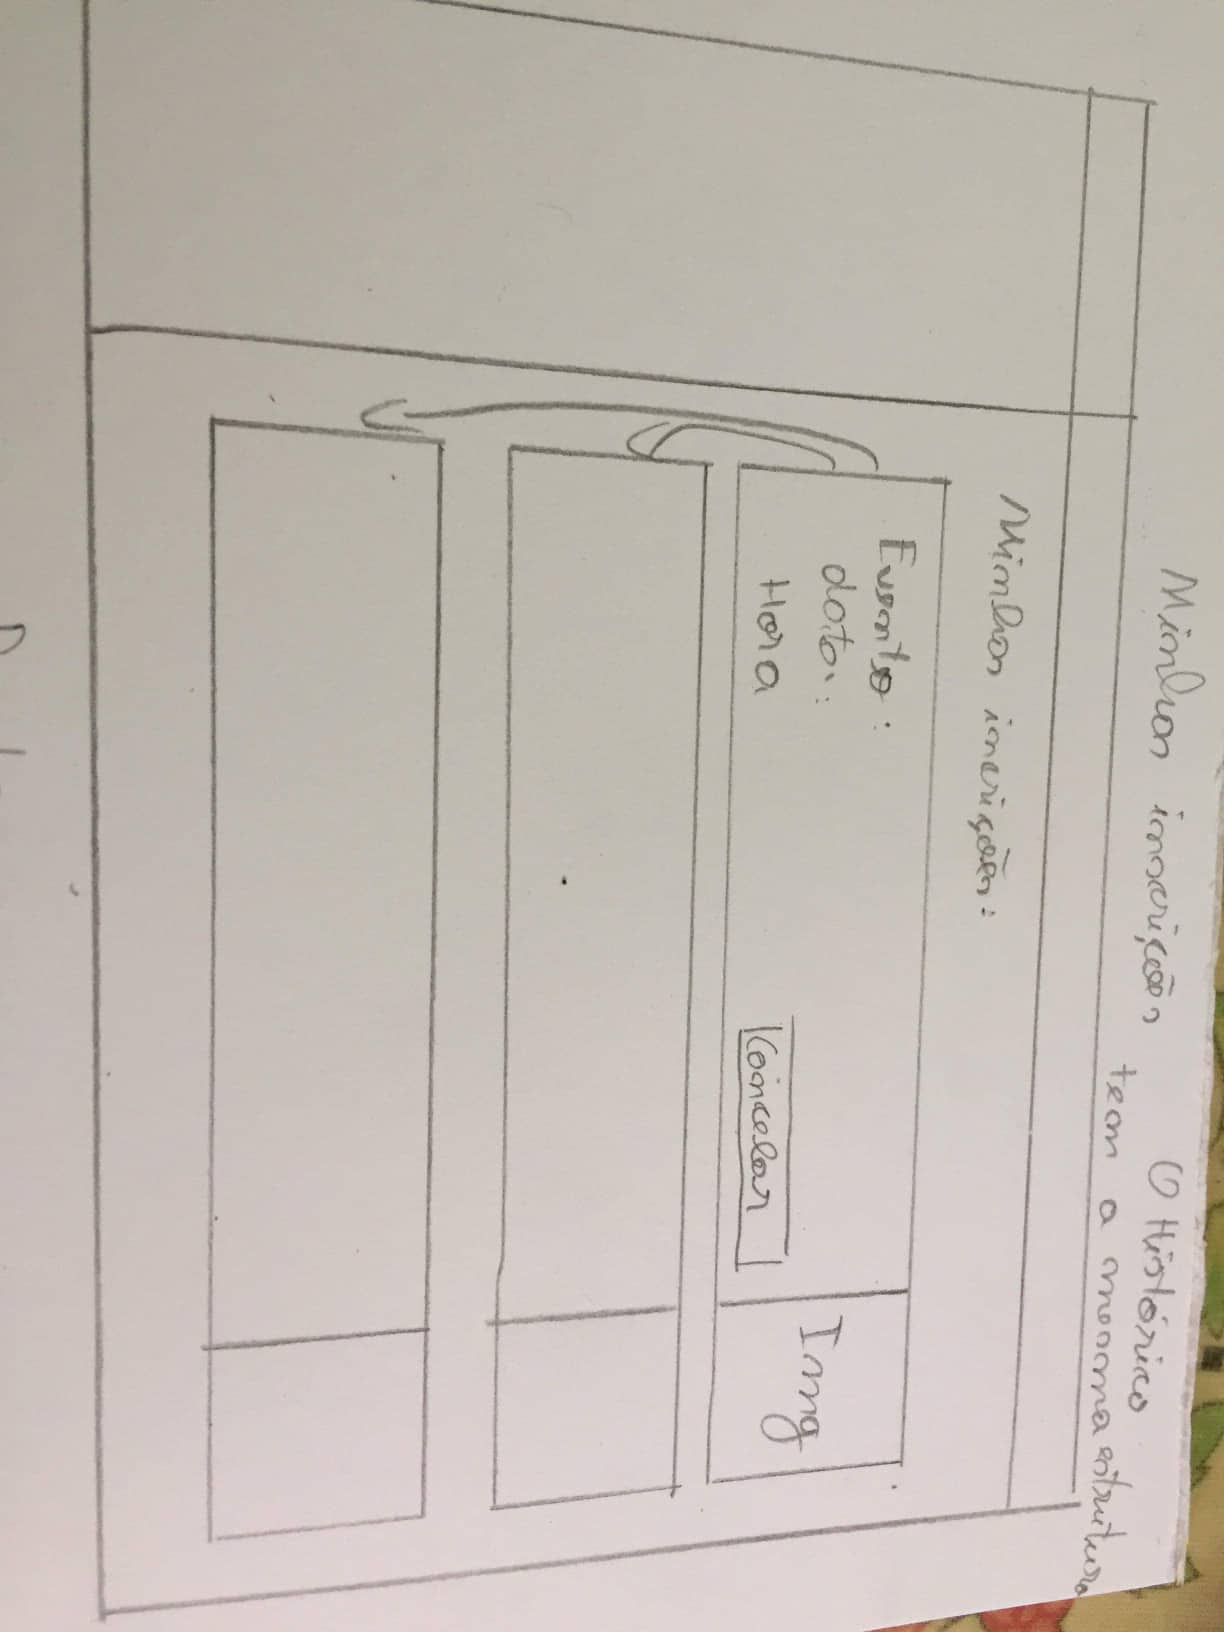 Minhas inscrições
O Histórico
tem a mesma estrutura
Minhas incrições:
Evento:
data:
Hora
Cancelar
Img